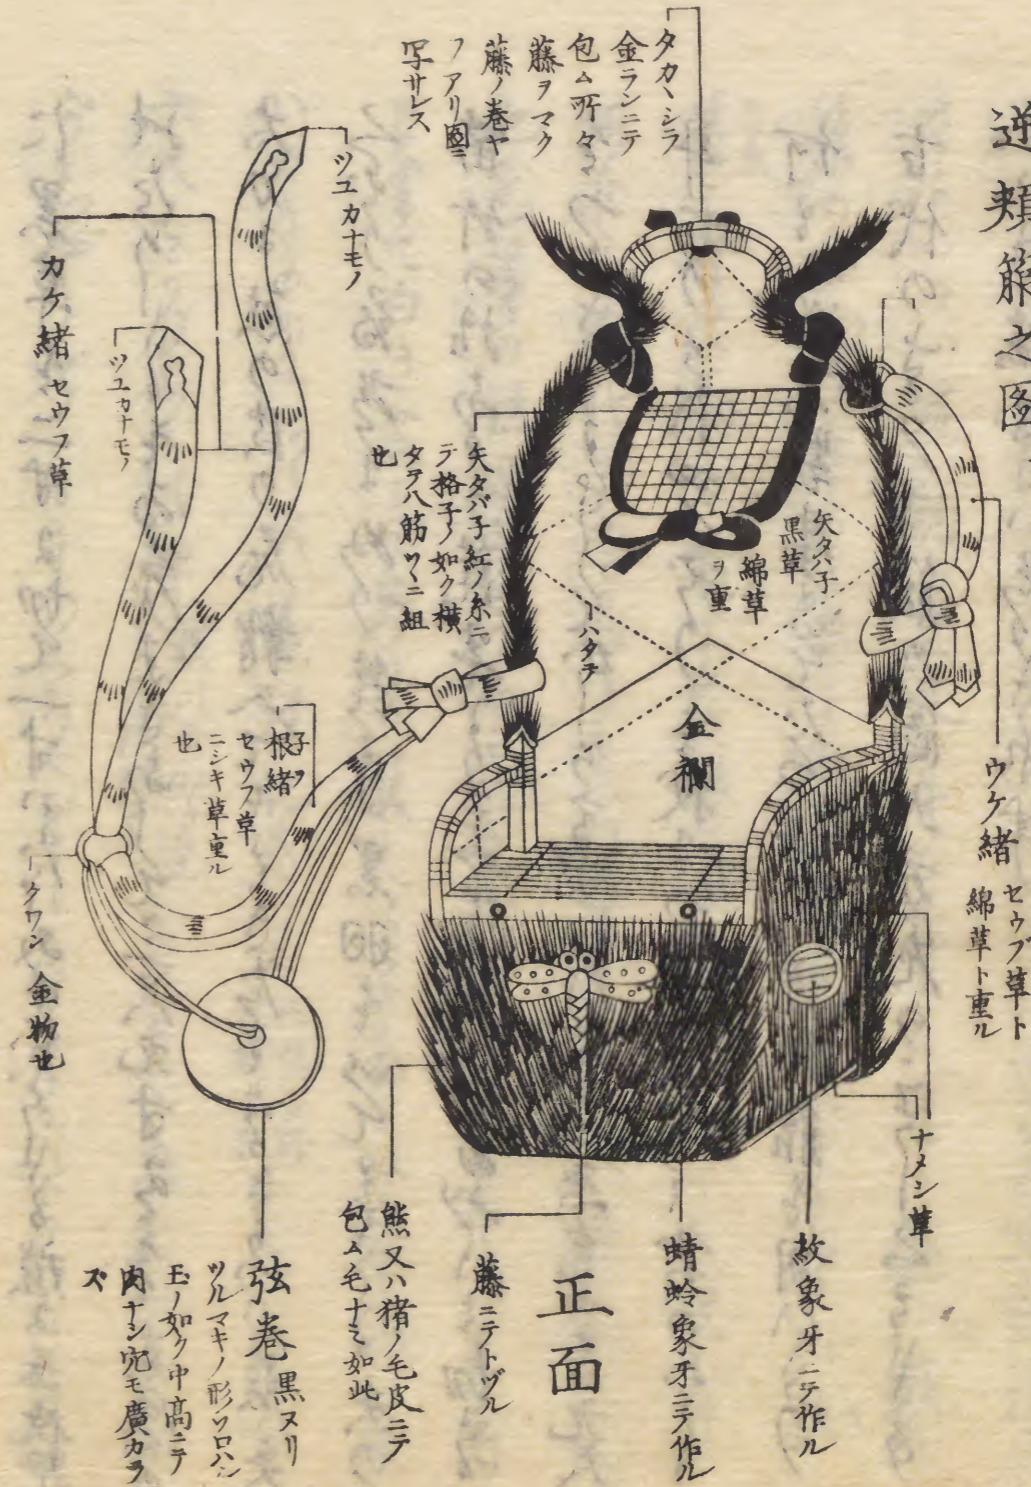 逆頬箙之図
タカヽシラ
金ランニテ
包ム所々
藤ヲマク
藤ノ巻ヤ
フアリ圖ニ
写サレス
ツユカナモノ
カケ緒 セウフ草
ツユカナモノ
矢タバ子紅ノ糸ニ
テ格子ノ如ク横
タテ八筋ツヽニ組
也
矢タハ子
黒草
綿草
ヲ重
ハタテ
金襴
ウケ緒 セウブ草ト
綿草ト重ル
根緒
子ヲ
セウフ草
ニシキ草重ル
也
クワン 金物也
ナメシ草
紋象牙ニテ作ル
蜻蛉象牙ニテ作ル
正面
藤ニテトヅル
熊又ハ猪ノ毛皮ニテ
包ム毛ナミ如此
弦巻 黒ヌリ
ツルマキノ形ソロハン
玉ノ如ク中高ニテ
肉ナシ穴モ廣カラ
ズ